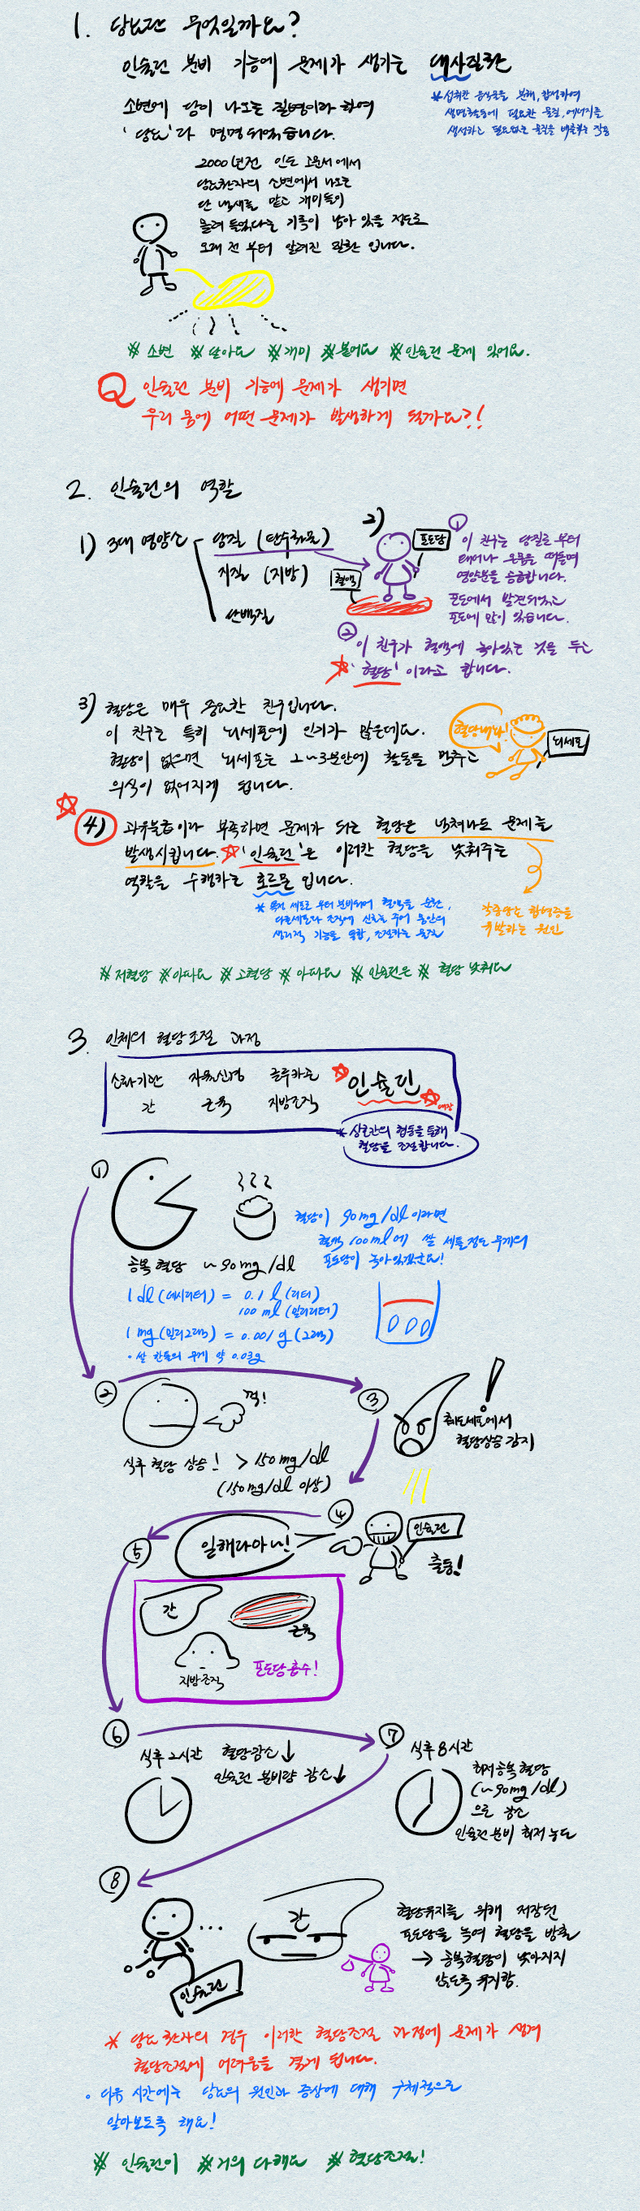 1. 당뇨란 무엇일까요?
인슐린 분비 기능에 문제가 생기는 대사질환
* 섭취한 음식물을 분해, 합성하여
생명활동에 필요한 물질, 에너지를
생성하고 필요없는 물질을 배출하는 작용
소변에 당이 나오는 질병이라 하여
'당뇨'라 명명 되었습니다.
2000년전 인도 고문서에서
당뇨환자의 소변에서 나오는
단 냄새를 맡고 개미들이
몰려 들었다는 기록이 남아 있을 정도로
오래 전 부터 알려진 질환 입니다.
※ 소변 ※ 달아요 ※ 개미 ※ 붙어요 ※ 인슐린 문제 있어요.
Q 인슐린 분비 기능에 문제가 생기면
우리 몸에 어떤 문제가 발생하게 될까요?!
2. 인슐린의 역할
1) 3대 영양소
당질 (탄수화물)
지질 (지방)
단백질
2)
포도당
혈액
① 이 친구는 당질로 부터
태어나 온몸을 떠돌며
영양분을 공급합니다.
포도에서 발견되었고
포도에 많이 있습니다.
② 이 친구가 혈액에 녹아있는 것을 두고
'혈당' 이라고 합니다.
3) 혈당은 매우 중요한 친구입니다.
이 친구는 특히 뇌세포에 인기가 많은데요.
혈당이 없으면 뇌세포는 2~3분안에 활동을 멈추고
의식이 없어지게 됩니다.
혈당내놔!
뇌세포
4) 과유불급이라 부족하면 문제가 되는 혈당은 넘쳐나도 문제를
발생시킵니다. '인슐린'은 이러한 혈당을 낮춰주는
역할을 수행하는 호르몬 입니다.
* 특정 세포로 부터 분비되어 혈액을 순환,
다른세포나 조직에 신호를 주어 몸안의
생리적 기능을 통합, 조절하는 물질
각종당뇨 합병증을
유발하는 원인
※ 저혈당 ※ 아파요 ※ 고혈당 ※ 아파요 ※ 인슐린은 ※ 혈당 낮춰요
3. 인체의 혈당조절 과정
소화기관 자율신경 글루카곤 인슐린
간 근육 지방조직 대장
* 상호간의 협동을 통해
혈당을 조절합니다.
①
공복 혈당 ~90mg/dl
혈당이 90mg/dl 이라면
혈액 100ml에 쌀 세톨정도 무게의
포도당이 녹아있겠군요!
1dl (데시리터) = 0.1l (리터)
100ml (밀리리터)
1mg (밀리그램) = 0.001g (그램)
· 쌀 한톨의 무게 약 0.03g
②
꺽!
식후 혈당 상승! > 150mg/dl
(150mg/dl 이상)
③
!
췌도세포에서
혈당상승 감지
④
일해라아니!
인슐린
출동!
⑤
간
근육
지방조직
포도당흡수!
⑥
식후 2시간 혈당감소↓
인슐린 분비량 감소↓
⑦
식후 8시간
최저 공복 혈당
(~90mg/dl)
으로 감소
인슐린 분비 최저 농도
⑧
...
인슐린
간
혈당유지를 위해 저장된
포도당을 녹여 혈당을 방출
→ 공복혈당이 낮아지지
않도록 유지함.
* 당뇨 환자의 경우 이러한 혈당조절 과정에 문제가 생겨
혈당조절에 어려움을 겪게 됩니다.
◦ 다음 시간에는 당뇨의 원인과 증상에 대해 구체적으로
알아보도록 해요!
※ 인슐린이 ※ 거의 다해요 ※ 혈당조절!